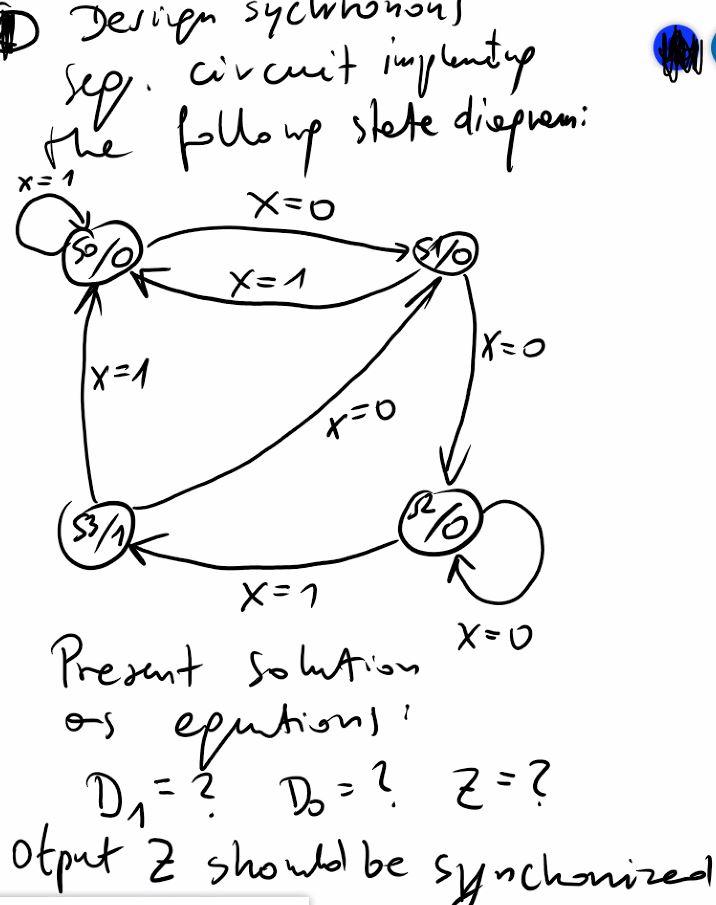 Design sychronous
seq. circuit implemting
the following state diagram:
x=1
S0/0
X=0
S1/0
X=1
X=1
X=0
x=0
S3/1
S2/0
X=1
X=0
Present solution
as equtions:
D1=? D0=? Z=?
Otput Z should be synchonized